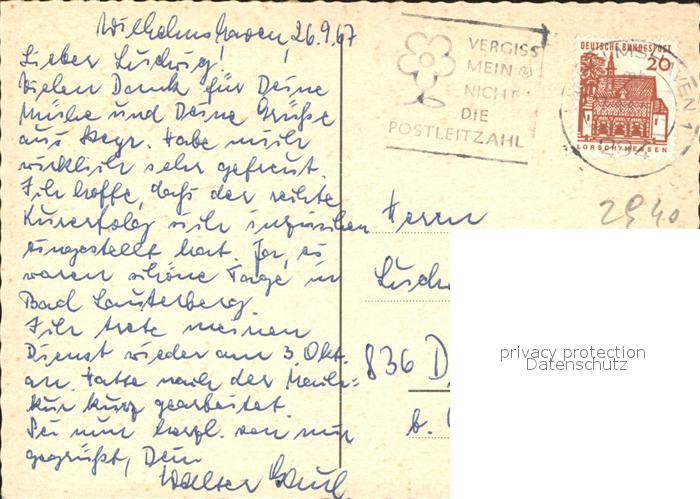 Wilhelmshaven, 26.9.67
Lieber Ludwig!
Vielen Dank für Deine
Mühe und Deine Grüße
aus Habe mich
wirklich sehr gefreut.
Ich hoffe, daß der rechte
Kurerfolg sich inzwischen
eingestellt hat. Ja, es
waren schöne Tage in
Bad Lauterberg.
Ich trete meinen
Dienst wieder am 3. Okt.
an. Hatte nach der
kur kurz gearbeitet.
Sei nun herzl. von mir
gegrüßt, Dein
Walter
VERGISS
MEIN
NICHT
DIE
POSTLEITZAHL
DEUTSCHE BUNDESPOST
20
LORSCH/HESSEN
2940
Herrn
836 D
b.
privacy protection
Datenschutz